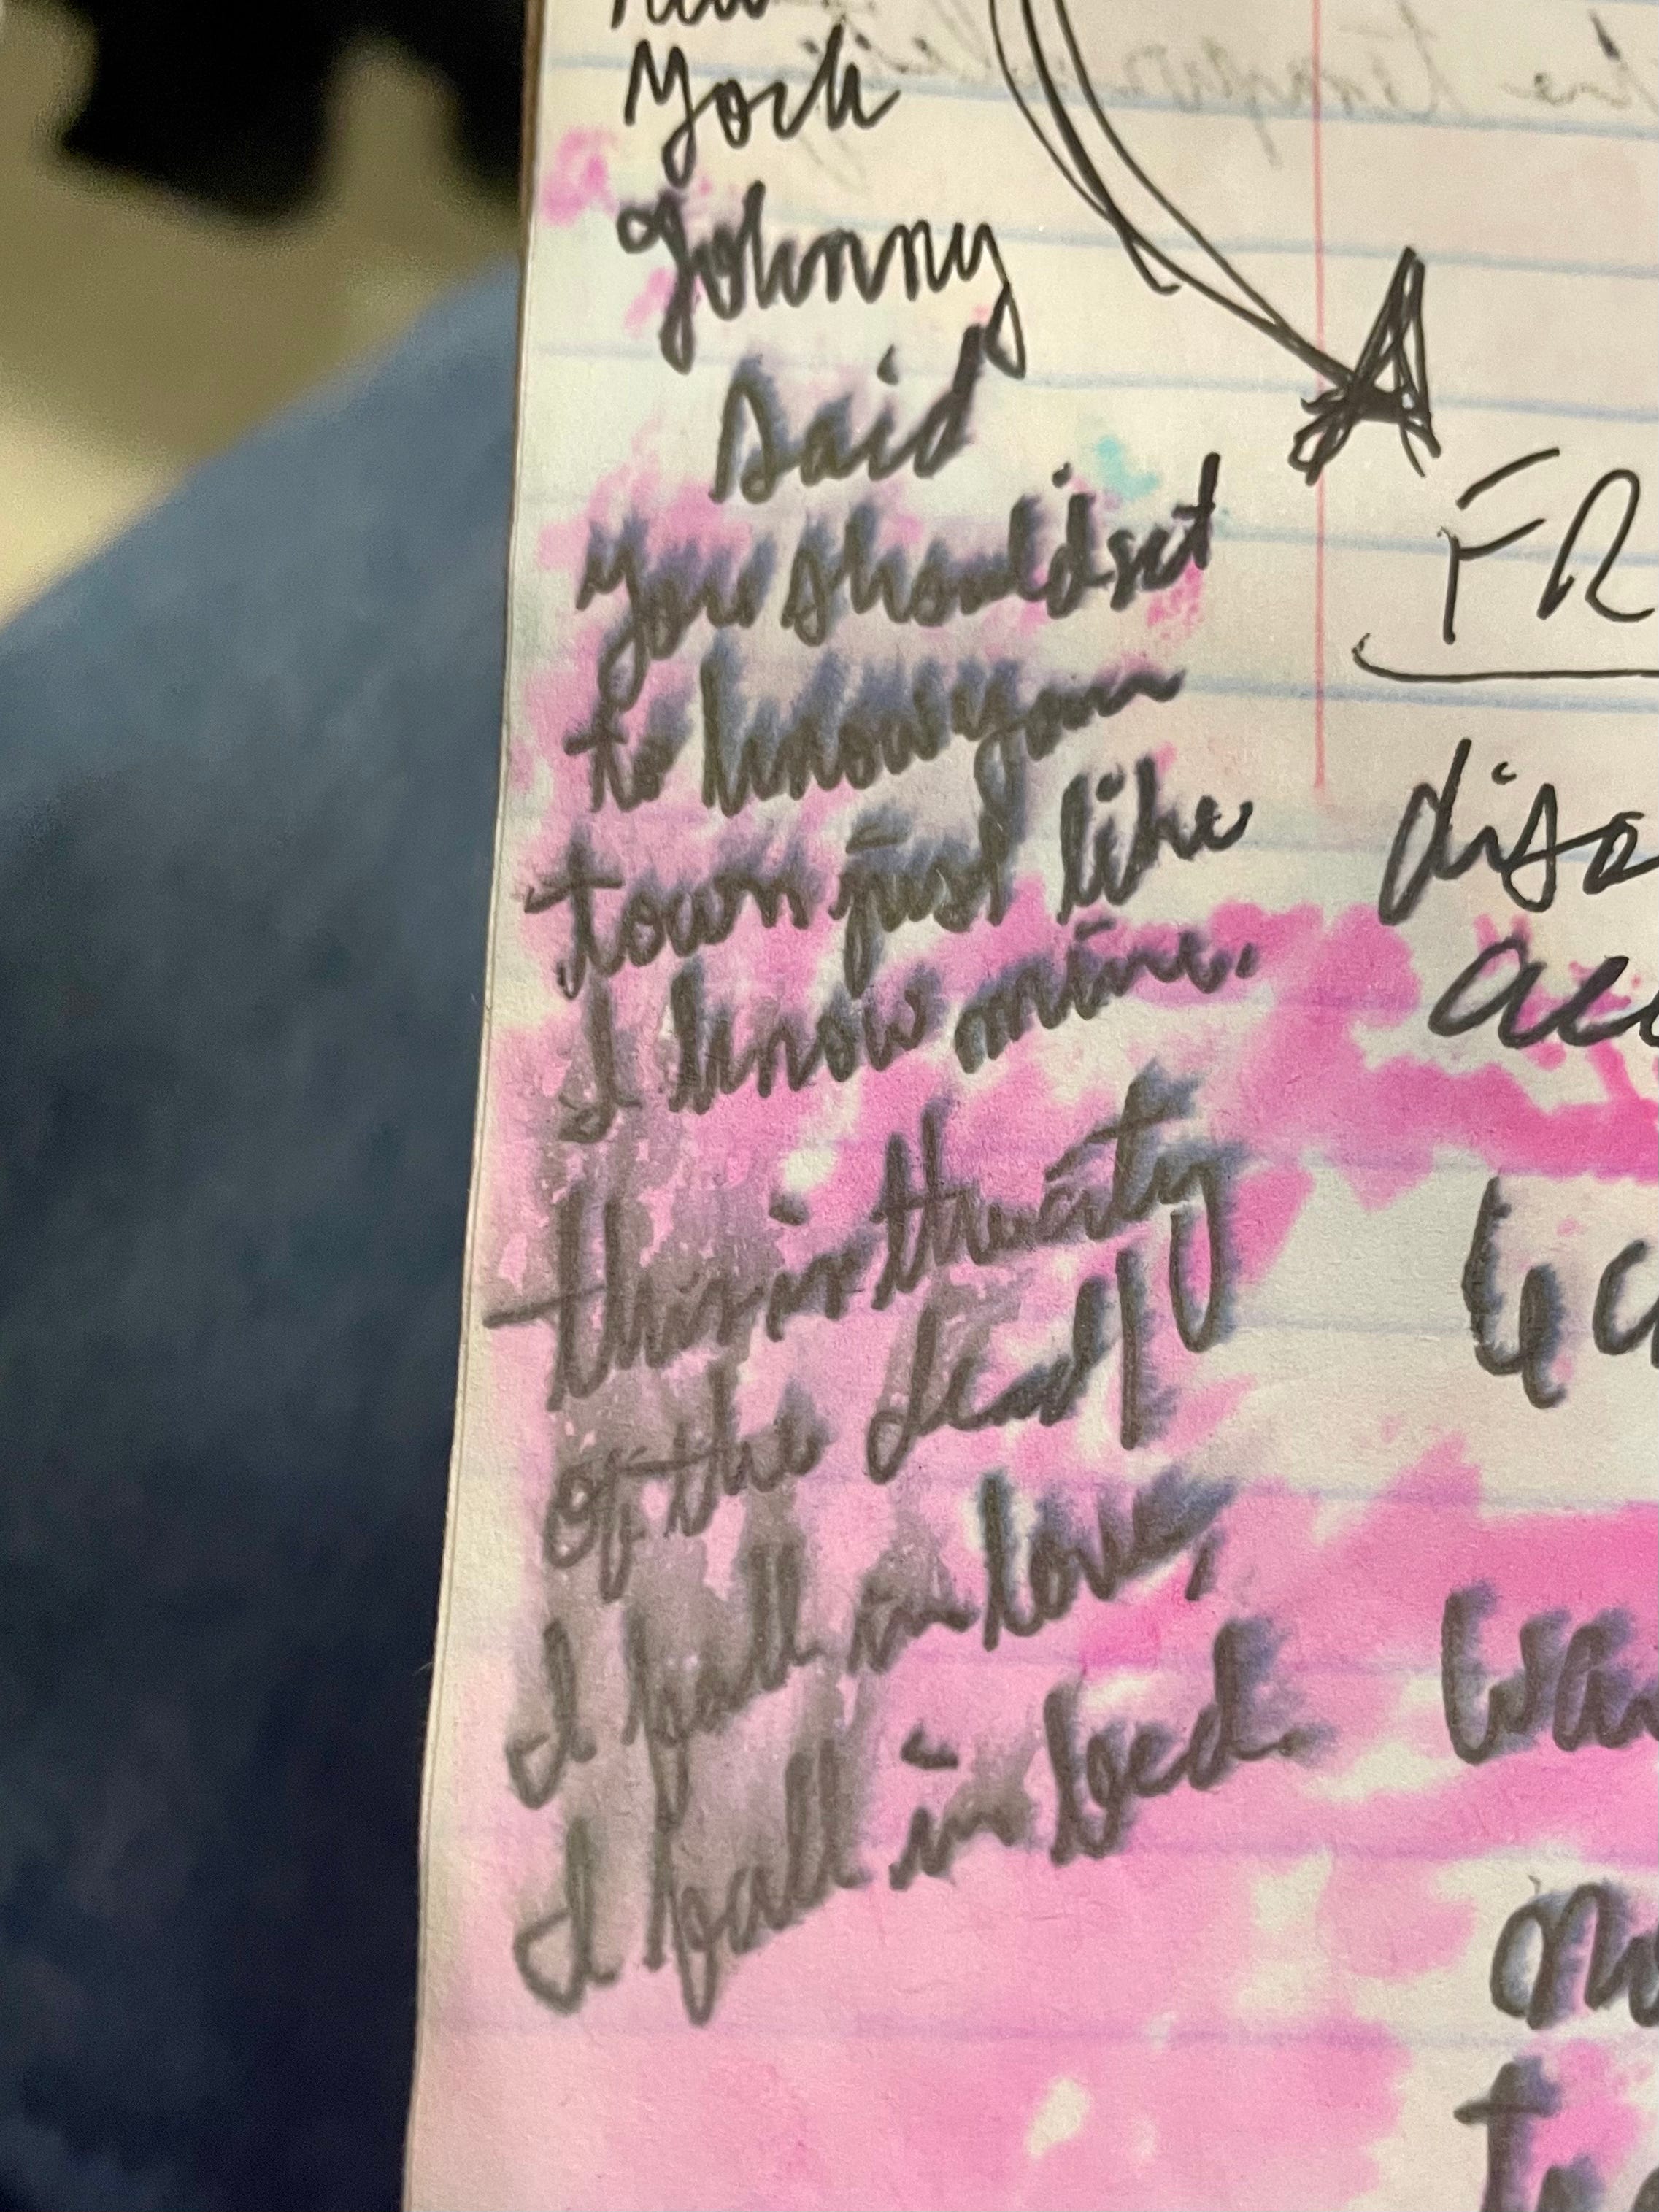 York
Johnny
said
you should set
to know your
town just like
I know mine.
this is the city
of the dead
I fall in love,
I fall in bed.
FR
diso
acc
wa